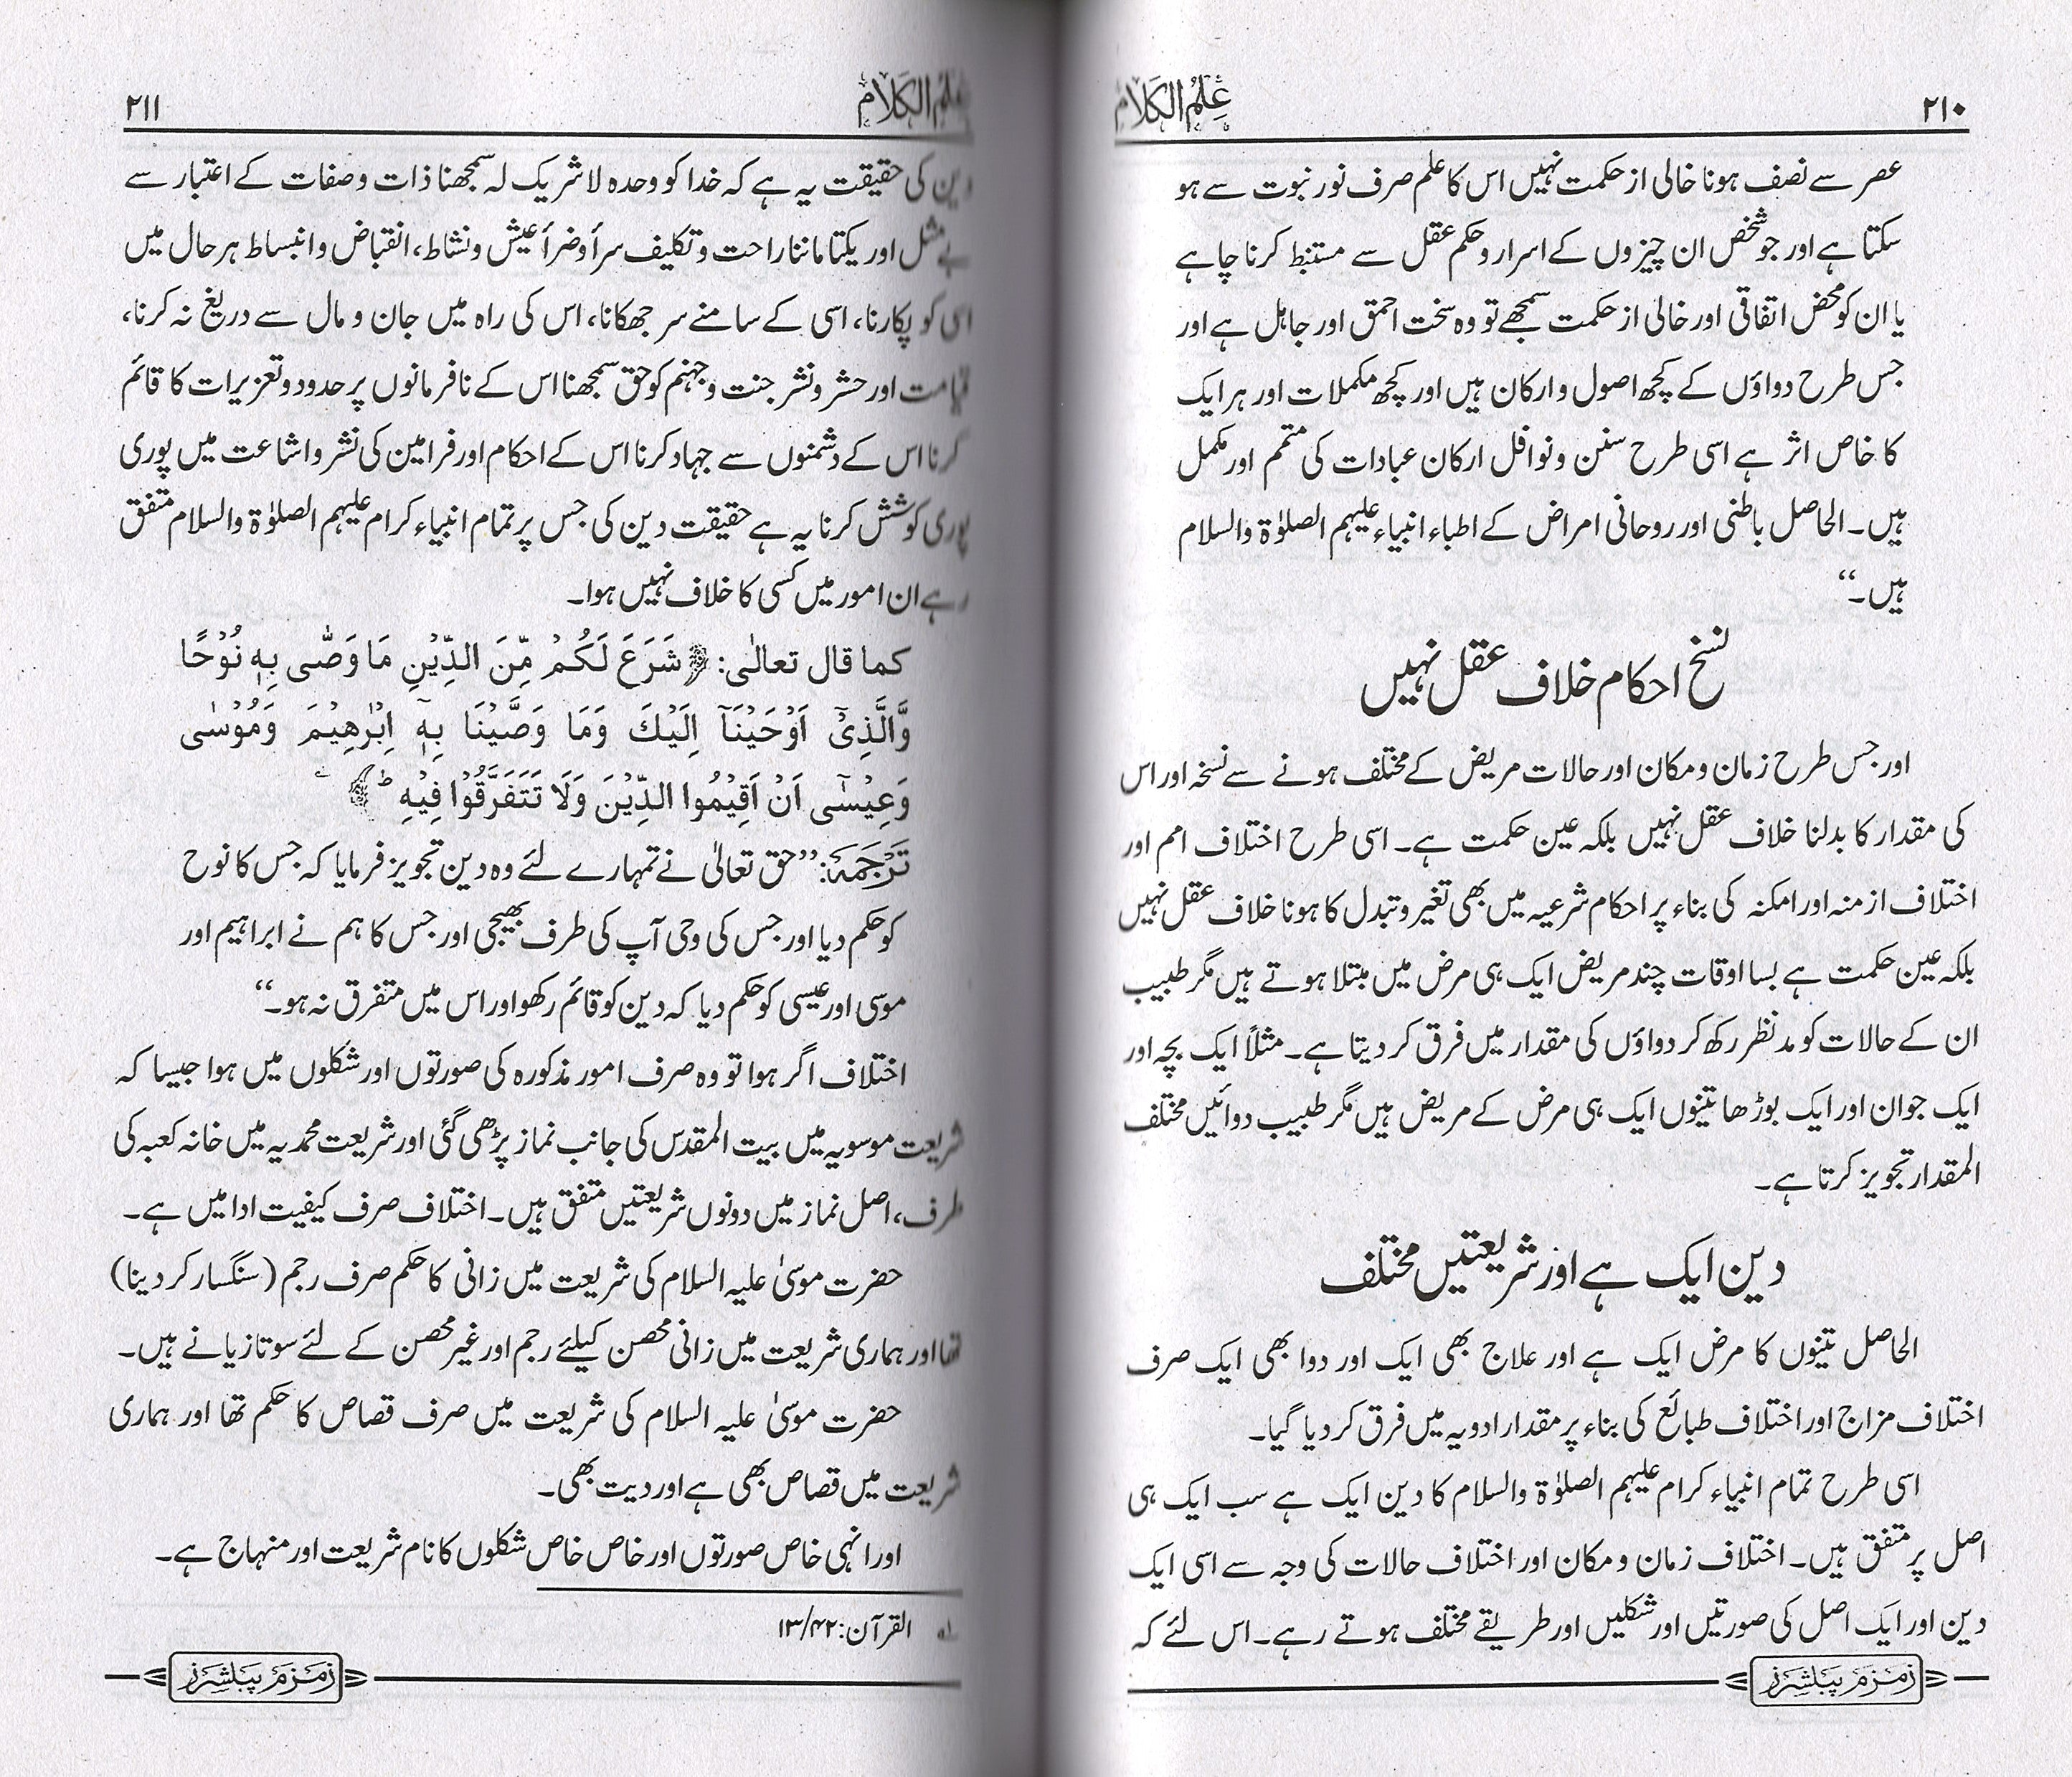 ۲۱۰
عِلْمُ الْکَلَام
عصر سے نصف ہونا خالی از حکمت نہیں اس کا علم صرف نور نبوت سے ہو
سکتا ہے اور جو شخص ان چیزوں کے اسرار و حکم عقل سے مستنبط کرنا چاہے
یا ان کو محض اتفاقی اور خالی از حکمت سمجھے تو وہ سخت احمق اور جاہل ہے اور
جس طرح دواؤں کے کچھ اصول و ارکان ہیں اور کچھ مکملات اور ہر ایک
کا خاص اثر ہے اسی طرح سنن و نوافل ارکان عبادات کی متمم اور مکمل
ہیں۔ الحاصل باطنی اور روحانی امراض کے اطباء انبیاء علیہم الصلوٰۃ والسلام
ہیں۔“
نسخ احکام خلاف عقل نہیں
اور جس طرح زمان و مکان اور حالات مریض کے مختلف ہونے سے نسخہ اور اس
کی مقدار کا بدلنا خلاف عقل نہیں بلکہ عین حکمت ہے۔ اسی طرح اختلاف امم اور
اختلاف ازمنہ اور امکنہ کی بناء پر احکام شرعیہ میں بھی تغیر و تبدل کا ہونا خلاف عقل نہیں
بلکہ عین حکمت ہے بسا اوقات چند مریض ایک ہی مرض میں مبتلا ہوتے ہیں مگر طبیب
ان کے حالات کو مد نظر رکھ کر دواؤں کی مقدار میں فرق کر دیتا ہے۔ مثلاً ایک بچہ اور
ایک جوان اور ایک بوڑھا تینوں ایک ہی مرض کے مریض ہیں مگر طبیب دوائیں مختلف
المقدار تجویز کرتا ہے۔
دین ایک ہے اور شریعتیں مختلف
الحاصل تینوں کا مرض ایک ہے اور علاج بھی ایک اور دوا بھی ایک صرف
اختلاف مزاج اور اختلاف طبائع کی بناء پر مقدار ادویہ میں فرق کر دیا گیا۔
اسی طرح تمام انبیاء کرام علیہم الصلوٰۃ والسلام کا دین ایک ہے سب ایک ہی
اصل پر متفق ہیں۔ اختلاف زمان و مکان اور اختلاف حالات کی وجہ سے اسی ایک
دین اور ایک اصل کی صورتیں اور شکلیں اور طریقے مختلف ہوتے رہے۔ اس لئے کہ
زمزم پبلشرز
عِلْمُ الْکَلَام
۲۱۱
دین کی حقیقت یہ ہے کہ خدا کو وحدہ لا شریک لہ سمجھنا ذات و صفات کے اعتبار سے
بے مثل اور یکتا ماننا راحت و تکلیف سراً و ضراً عیش و نشاط، انقباض و انبساط ہر حال میں
اسی کو پکارنا، اسی کے سامنے سر جھکانا، اس کی راہ میں جان و مال سے دریغ نہ کرنا،
قیامت اور حشر و نشر جنت و جہنم کو حق سمجھنا اس کے نافرمانوں پر حدود و تعزیرات کا قائم
کرنا اس کے دشمنوں سے جہاد کرنا اس کے احکام اور فرامین کی نشر و اشاعت میں پوری
پوری کوشش کرنا یہ ہے حقیقت دین کی جس پر تمام انبیاء کرام علیہم الصلوٰۃ والسلام متفق
رہے ان امور میں کسی کا خلاف نہیں ہوا۔
کما قال تعالٰی: ﴿شَرَعَ لَکُمْ مِّنَ الدِّیْنِ مَا وَصّٰی بِہٖ نُوْحًا
وَّالَّذِیْۤ اَوْحَیْنَاۤ اِلَیْكَ وَمَا وَصَّیْنَا بِہٖۤ اِبْرٰھِیْمَ وَمُوْسٰی
وَعِیْسٰۤی اَنْ اَقِیْمُوا الدِّیْنَ وَلَا تَتَفَرَّقُوْا فِیْہِ ؕ﴾ ؎
تَرْجَمَۃ: ”حق تعالیٰ نے تمہارے لئے وہ دین تجویز فرمایا کہ جس کا نوح
کو حکم دیا اور جس کی وحی آپ کی طرف بھیجی اور جس کا ہم نے ابراہیم اور
موسی اور عیسی کو حکم دیا کہ دین کو قائم رکھو اور اس میں متفرق نہ ہو۔“
اختلاف اگر ہوا تو وہ صرف امور مذکورہ کی صورتوں اور شکلوں میں ہوا جیسا کہ
شریعت موسویہ میں بیت المقدس کی جانب نماز پڑھی گئی اور شریعت محمدیہ میں خانہ کعبہ کی
طرف، اصل نماز میں دونوں شریعتیں متفق ہیں۔ اختلاف صرف کیفیت ادا میں ہے۔
حضرت موسیٰ علیہ السلام کی شریعت میں زانی کا حکم صرف رجم (سنگسار کر دینا)
تھا اور ہماری شریعت میں زانی محصن کیلئے رجم اور غیر محصن کے لئے سو تازیانے ہیں۔
حضرت موسیٰ علیہ السلام کی شریعت میں صرف قصاص کا حکم تھا اور ہماری
شریعت میں قصاص بھی ہے اور دیت بھی۔
اور انہی خاص صورتوں اور خاص خاص شکلوں کا نام شریعت اور منہاج ہے۔
؎ القرآن: ۱۳/۴۲
زمزم پبلشرز